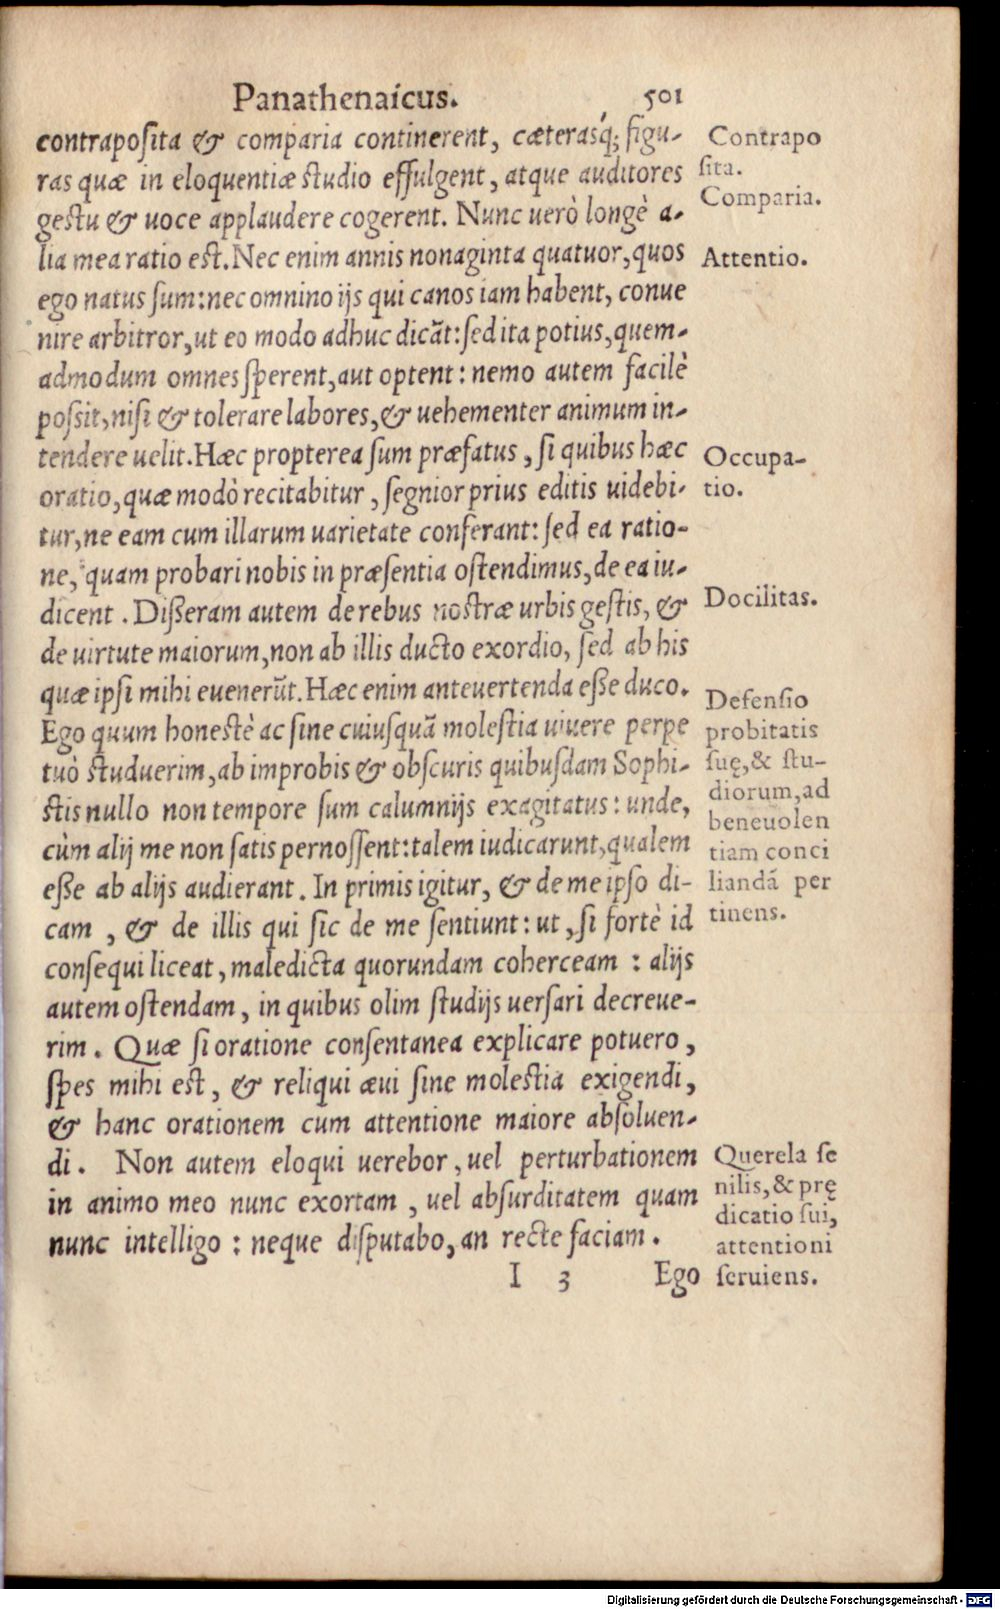 Panathenaicus. 501
contraposita & comparia continerent, cæterasq́; figu-
ras quæ in eloquentiæ studio effulgent, atque auditores
gestu & uoce applaudere cogerent. Nunc uerò longè a-
lia mea ratio est. Nec enim annis nonaginta quatuor, quos
ego natus sum: nec omnino ijs qui canos iam habent, conue
nire arbitror, ut eo modo adhuc dicãt: sed ita potius, quem-
admodum omnes sperent, aut optent: nemo autem facilè
possit, nisi & tolerare labores, & uehementer animum in-
tendere uelit. Hæc propterea sum præfatus, si quibus hæc
oratio, quæ modò recitabitur, segnior prius editis uidebi-
tur, ne eam cum illarum uarietate conferant: sed ea ratio-
ne, quam probari nobis in præsentia ostendimus, de ea iu-
dicent. Disseram autem de rebus nostræ urbis gestis, &
de uirtute maiorum, non ab illis ducto exordio, sed ab his
quæ ipsi mihi euenerũt. Hæc enim anteuertenda esse duco.
Ego quum honestè ac sine cuiusquã molestia uiuere perpe
tuò studuerim, ab improbis & obscuris quibusdam Sophi-
stis nullo non tempore sum calumnijs exagitatus: unde,
cùm alij me non satis pernossent: talem iudicarunt, qualem
esse ab alijs audierant. In primis igitur, & de me ipso di-
cam, & de illis qui sic de me sentiunt: ut, si fortè id
consequi liceat, maledicta quorundam coherceam: alijs
autem ostendam, in quibus olim studijs uersari decreue-
rim. Quæ si oratione consentanea explicare potuero,
spes mihi est, & reliqui æui sine molestia exigendi,
& hanc orationem cum attentione maiore absoluen-
di. Non autem eloqui uerebor, uel perturbationem
in animo meo nunc exortam, uel absurditatem quam
nunc intelligo: neque disputabo, an recte faciam.
I 3 Ego
Contrapo
sita.
Comparia.
Attentio.
Occupa-
tio.
Docilitas.
Defensio
probitatis
suę, & stu-
diorum, ad
beneuolen
tiam conci
liandã per
tinens.
Querela se
nilis, & prę
dicatio sui,
attentioni
seruiens.
Digitalisierung gefördert durch die Deutsche Forschungsgemeinschaft - DFG